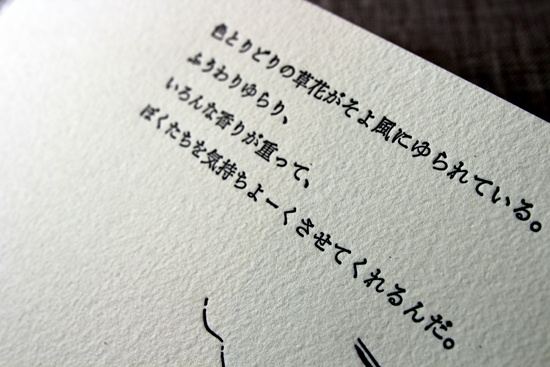 色とりどりの草花がそよ風にゆられている。
ふうわりゆらり、
いろんな香りが重って、
ぼくたちを気持ちよーくさせてくれるんだ。